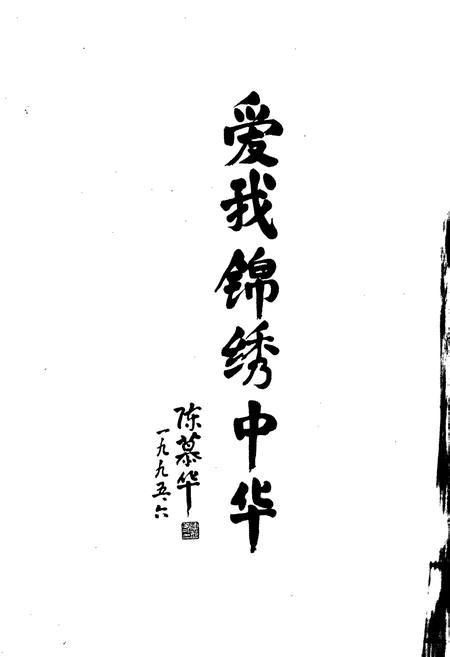 爱我锦绣中华
陈慕华
一九九五·六